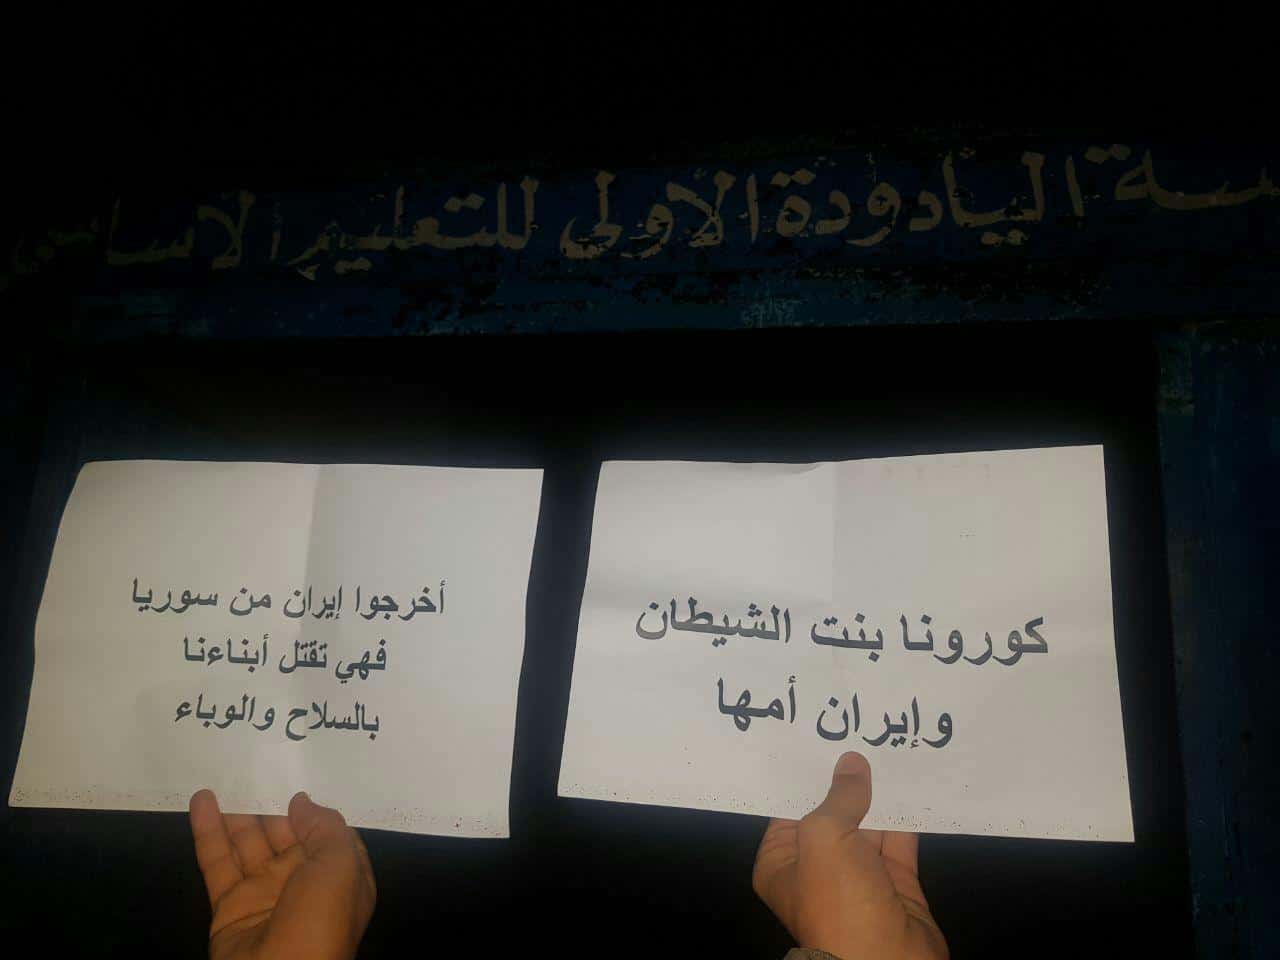 سة اليادودة الاولى للتعليم الاساسي
أخرجوا إيران من سوريا
فهي تقتل أبناءنا
بالسلاح والوباء
كورونا بنت الشيطان
وإيران أمها